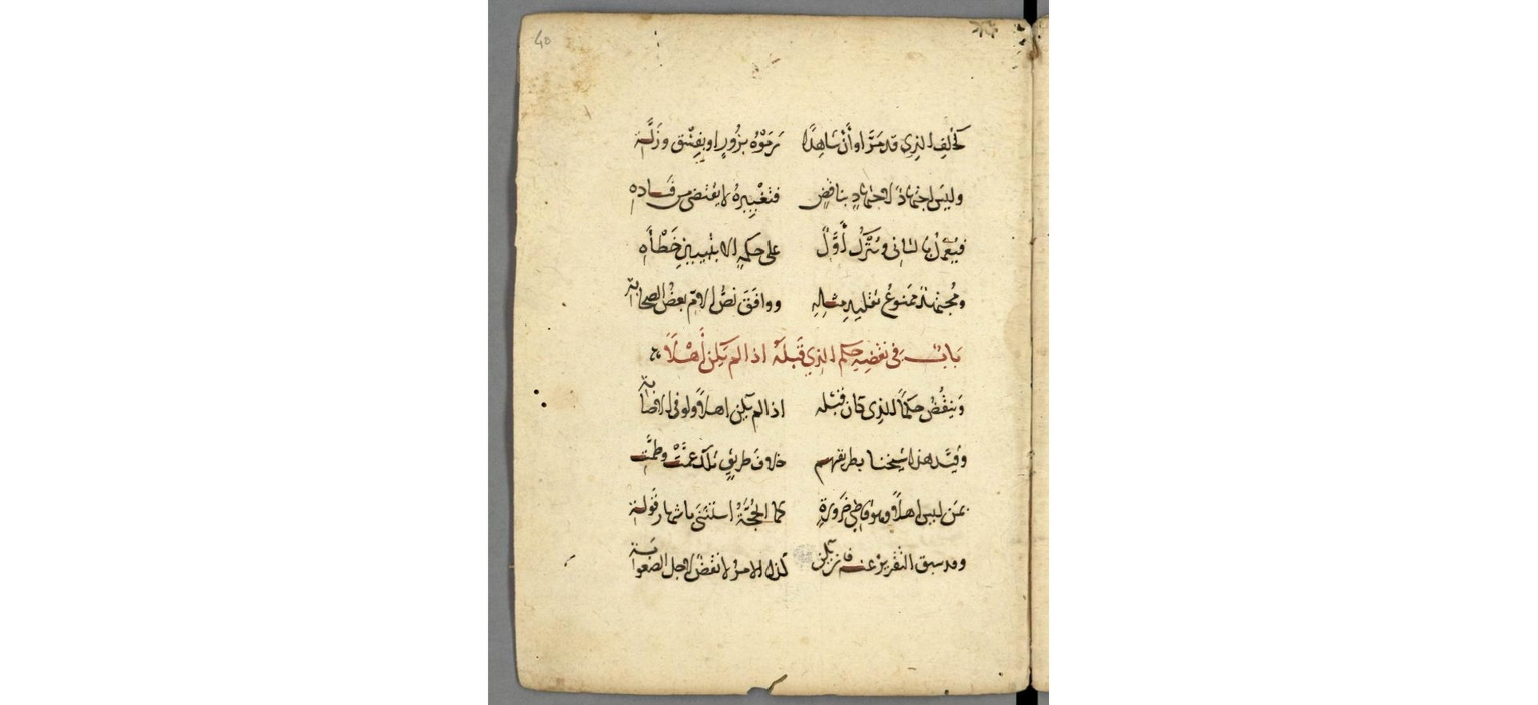 كحالف الذي قد مرّ او أنْ شاهدًا يرمَوْهُ بزُورٍ او بفِسْقٍ وزَلَّة
وليس اجتهادٌ لاجتهادٍ بناقضٍ فتغييره لا يقتضي من فساده
فيُعمل بالثاني ويُترَكُ أوَّلٌ على حكمه الا بتبيين خَطْأه
ومُجتهد ممنوعُ تقليد مثله ووافَقَ نصُّ الامّ بعضُ الصحابة
بابٌ في نقضه حكم الذي قَبلَهُ اذا لم يكن أهلاً
وينقُضُ حكمًا للذي كان قبله اذا لم يكن اهلاً ولو في الاصابة
وقيَّد هذا شيخنا بطريقهم خلاف طريقٍ تلك عمَّتْ وطمَّت
عمَن ليس اهلاً وهو قاضي ضرورةٍ كما الحُجَّةُ استثنى
وقد سبق التقرير عنه فان يكن كذا الامرُ لا نقضٌ لاجل الصعوبة
40